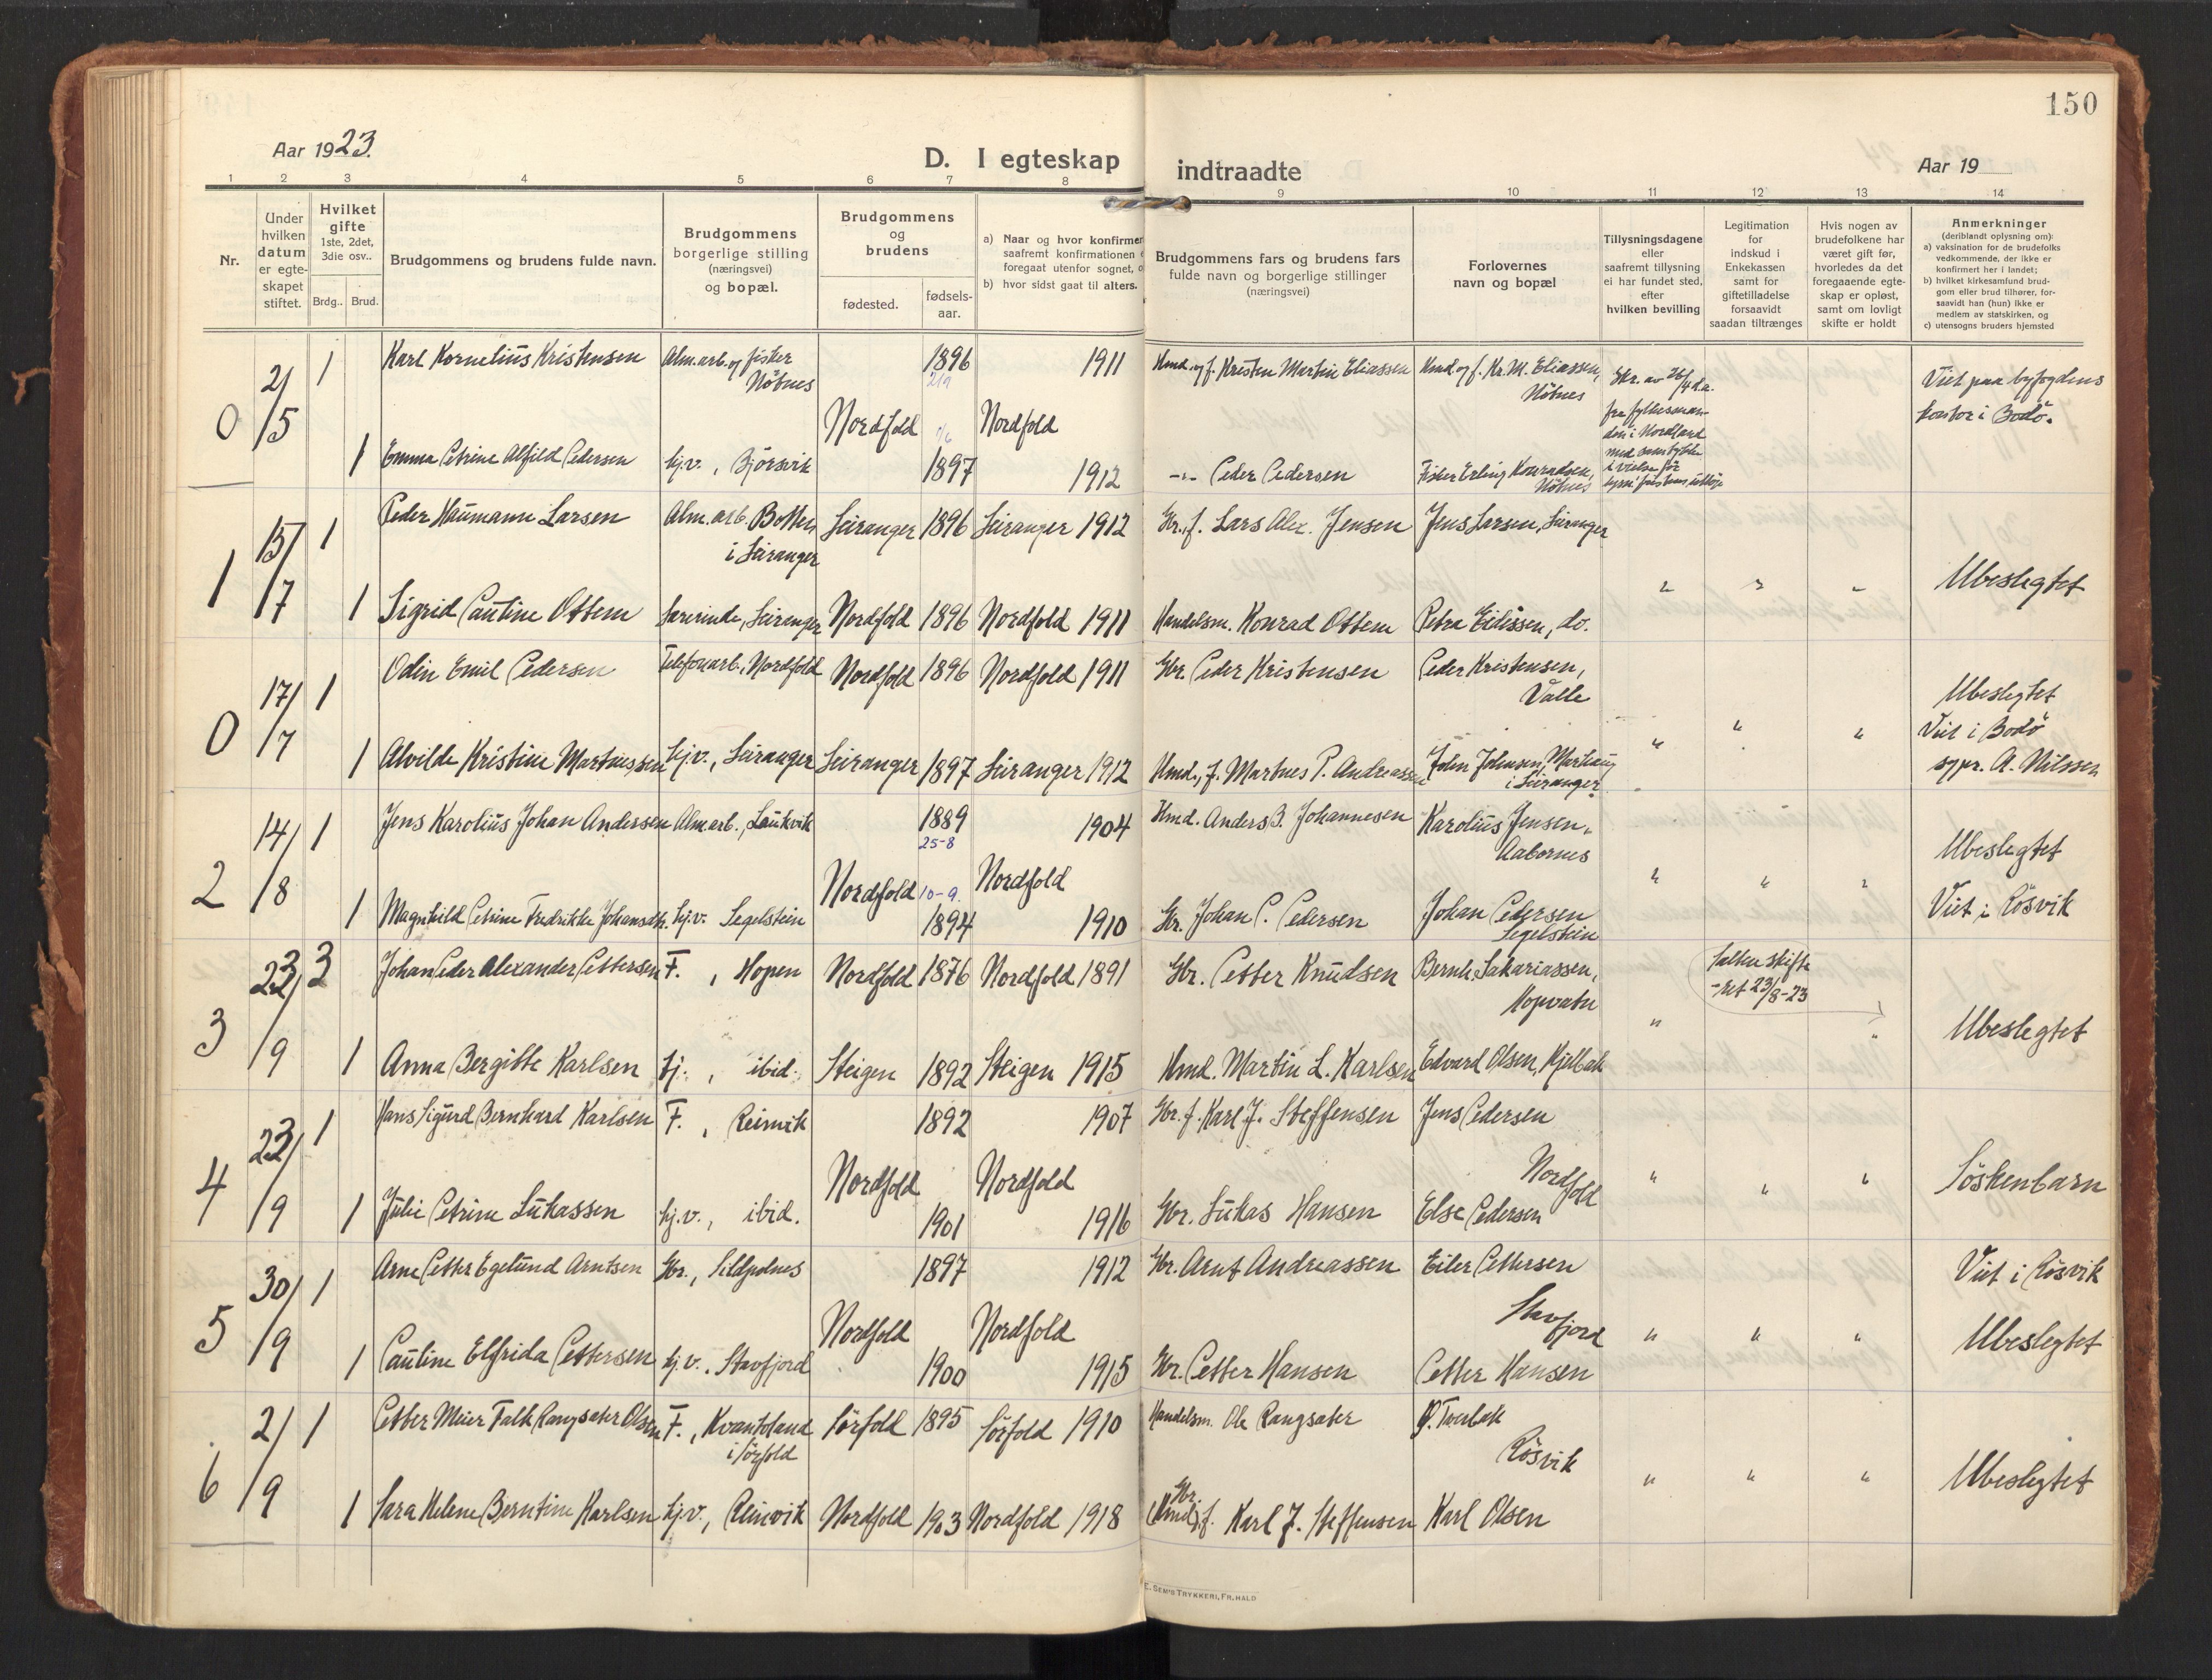 150
Aar 1923.
D. I egteskap
indtraadte
Aar 19
1 2 3 4 5 6 7 8 9 10 11 12 13 14
Nr.
Under hvilken datum er egte-skapet stiftet.
Hvilket gifte
1ste, 2det, 3die osv..
Brdg.. Brud.
Brudgommens og brudens fulde navn.
Brudgommens borgerlige stilling (næringsvei) og bopæl.
Brudgommens og brudens
fødested.
fødsels-aar.
a) Naar og hvor konfirmer
saafremt konfirmationen
foregaat utenfor sognet,
b) hvor sidst gaat til alters.
Brudgommens fars og brudens fars
fulde navn og borgerlige stillinger
(næringsvei)
Forlovernes
navn og bopæl
Tillysningsdagene
eller
saafremt tillysning
ei har fundet sted,
efter
hvilken bevilling
Legitimation
for
indskud i
Enkekassen
samt for
giftetilladelse
forsaavidt
saadan tiltrænges
Hvis nogen av
brudefolkene har
været gift før,
hvorledes da det
foregaaende egte-
skap er opløst,
samt om lovligt
skifte er holdt
Anmerkninger
(deriblandt oplysning om):
a) vaksination for de brudefolks
vedkommende, der ikke er
konfirmert her i landet;
b) hvilket kirkesamfund brud-
gom eller brud tilhører, for-
saavidt han (hun) ikke er
medlem av statskirken, og
c) utensogns bruders hjemsted
0 2/5 1 Karl Kornelius Kristensen Alm.arb. og fisker Nöbnes 1896 21/9 1911 Kmd. og f. Kristen Martin Eliassen Kmd og f. Kr. M. Eliassen, Nöbnes
Skr. av 26/4 d.a. fra fylkesman-den i Nordland med samtykke i vielse før
Viet paa byfogdens kontor i Bodö.
Nordfold Nordfold
1 Emma Petrine Alfild Pedersen hj.v., Björsvik 1897 1912 -"- Peder Pedersen Fisker Erling Konradsen, Nöbnes
1 15/7 1 Peder Haumann Larsen Alm. arb. Botten i Leiranger Leiranger 1896 Leiranger 1912 Gbr., f. Lars Alex. Jensen Jens Larsen, Leiranger
Ubeslegtet
1 Sigrid Pauline Ottem Lærerinde, Leiranger Nordfold 1896 Nordfold 1911 Handelsm. Konrad Ottem Petra Eidissen, do.
0 17/7 1 Odin Emil Pedersen Telefonarb., Nordfold Nordfold 1896 Nordfold 1911 Gbr. Peder Kristensen Peder Kristensen, Valle
Ubeslegtet
Viet i Bodö
sgpr. A. Nilssen
1 Alvilde Kristine Martinussen hj.v., Leiranger Leiranger 1897 Leiranger 1912 Kmd., f. Martines P. Andreassen John Johnsen, i Leiranger
2 14/8 1 Jens Karolius Johan Andersen Alm.arb., Laukvik 1889 25-8 1904 Kmd. Anders B. Johannesen Karolius Jensen, Aabornes
Ubeslegtet
Nordfold 10-9. Nordfold
Viet i Rösvik
1 Magnhild Petrine Fredrikke Johansdtr. hj.v. Segelstein 1894 1910 Gbr. Johan P. Pedersen Johan Pedersen Segelstein
3 23/9 3 Johan Peder Alexander Pettersen F., Hopen Nordfold 1876 Nordfold 1891 Gbr. Petter Knudsen Bernh. Sakariassen, Hopvatn
Salten skifte-ret 23/8-23
Ubeslegtet
1 Anna Bergitte Karlsen hj., ibid. Steigen 1892 Steigen 1915 Kmd. Martin L. Karlsen Edvard Olsen, Kjelbak
4 23/9 1 Hans Sigurd Bernhard Karlsen F., Reinvik 1892 1907 Gbr. f. Karl J. Steffensen Jens Pedersen
Nordfold Nordfold Nordfold
Söskenbarn
1 Julie Petrine Lukassen hj.v., ibid. 1901 1916 Gbr. Lukas Hansen Else Pedersen
5 30/9 1 Arne Petter Egelund Arntsen Gbr., Sildpolnes 1897 1912 Gbr. Arnt Andreassen Eiler Pettersen
Viet i Rösvik
Nordfold Nordfold Stavfjord
Ubeslegtet
1 Pauline Elfrida Pettersen hj.v., Stavfjord 1900 1915 Gbr. Petter Hansen Petter Hansen
6 2/9 1 Petter Meier Falk Rangsæter Olsen F., Kvantoland i Sörfold Sörfold 1895 Sörfold 1910 Handelsm. Ole Rangsæter P. Tverbak
Rösvik
Ubeslegtet
1 Sara Helene Berntine Karlsen hj.v., Reinvik Nordfold 1903 Nordfold 1918 Gbr. (Kmd), f. Karl J. Steffensen Karl Olsen
E. SEM'S TRYKKERI, FR.HALD